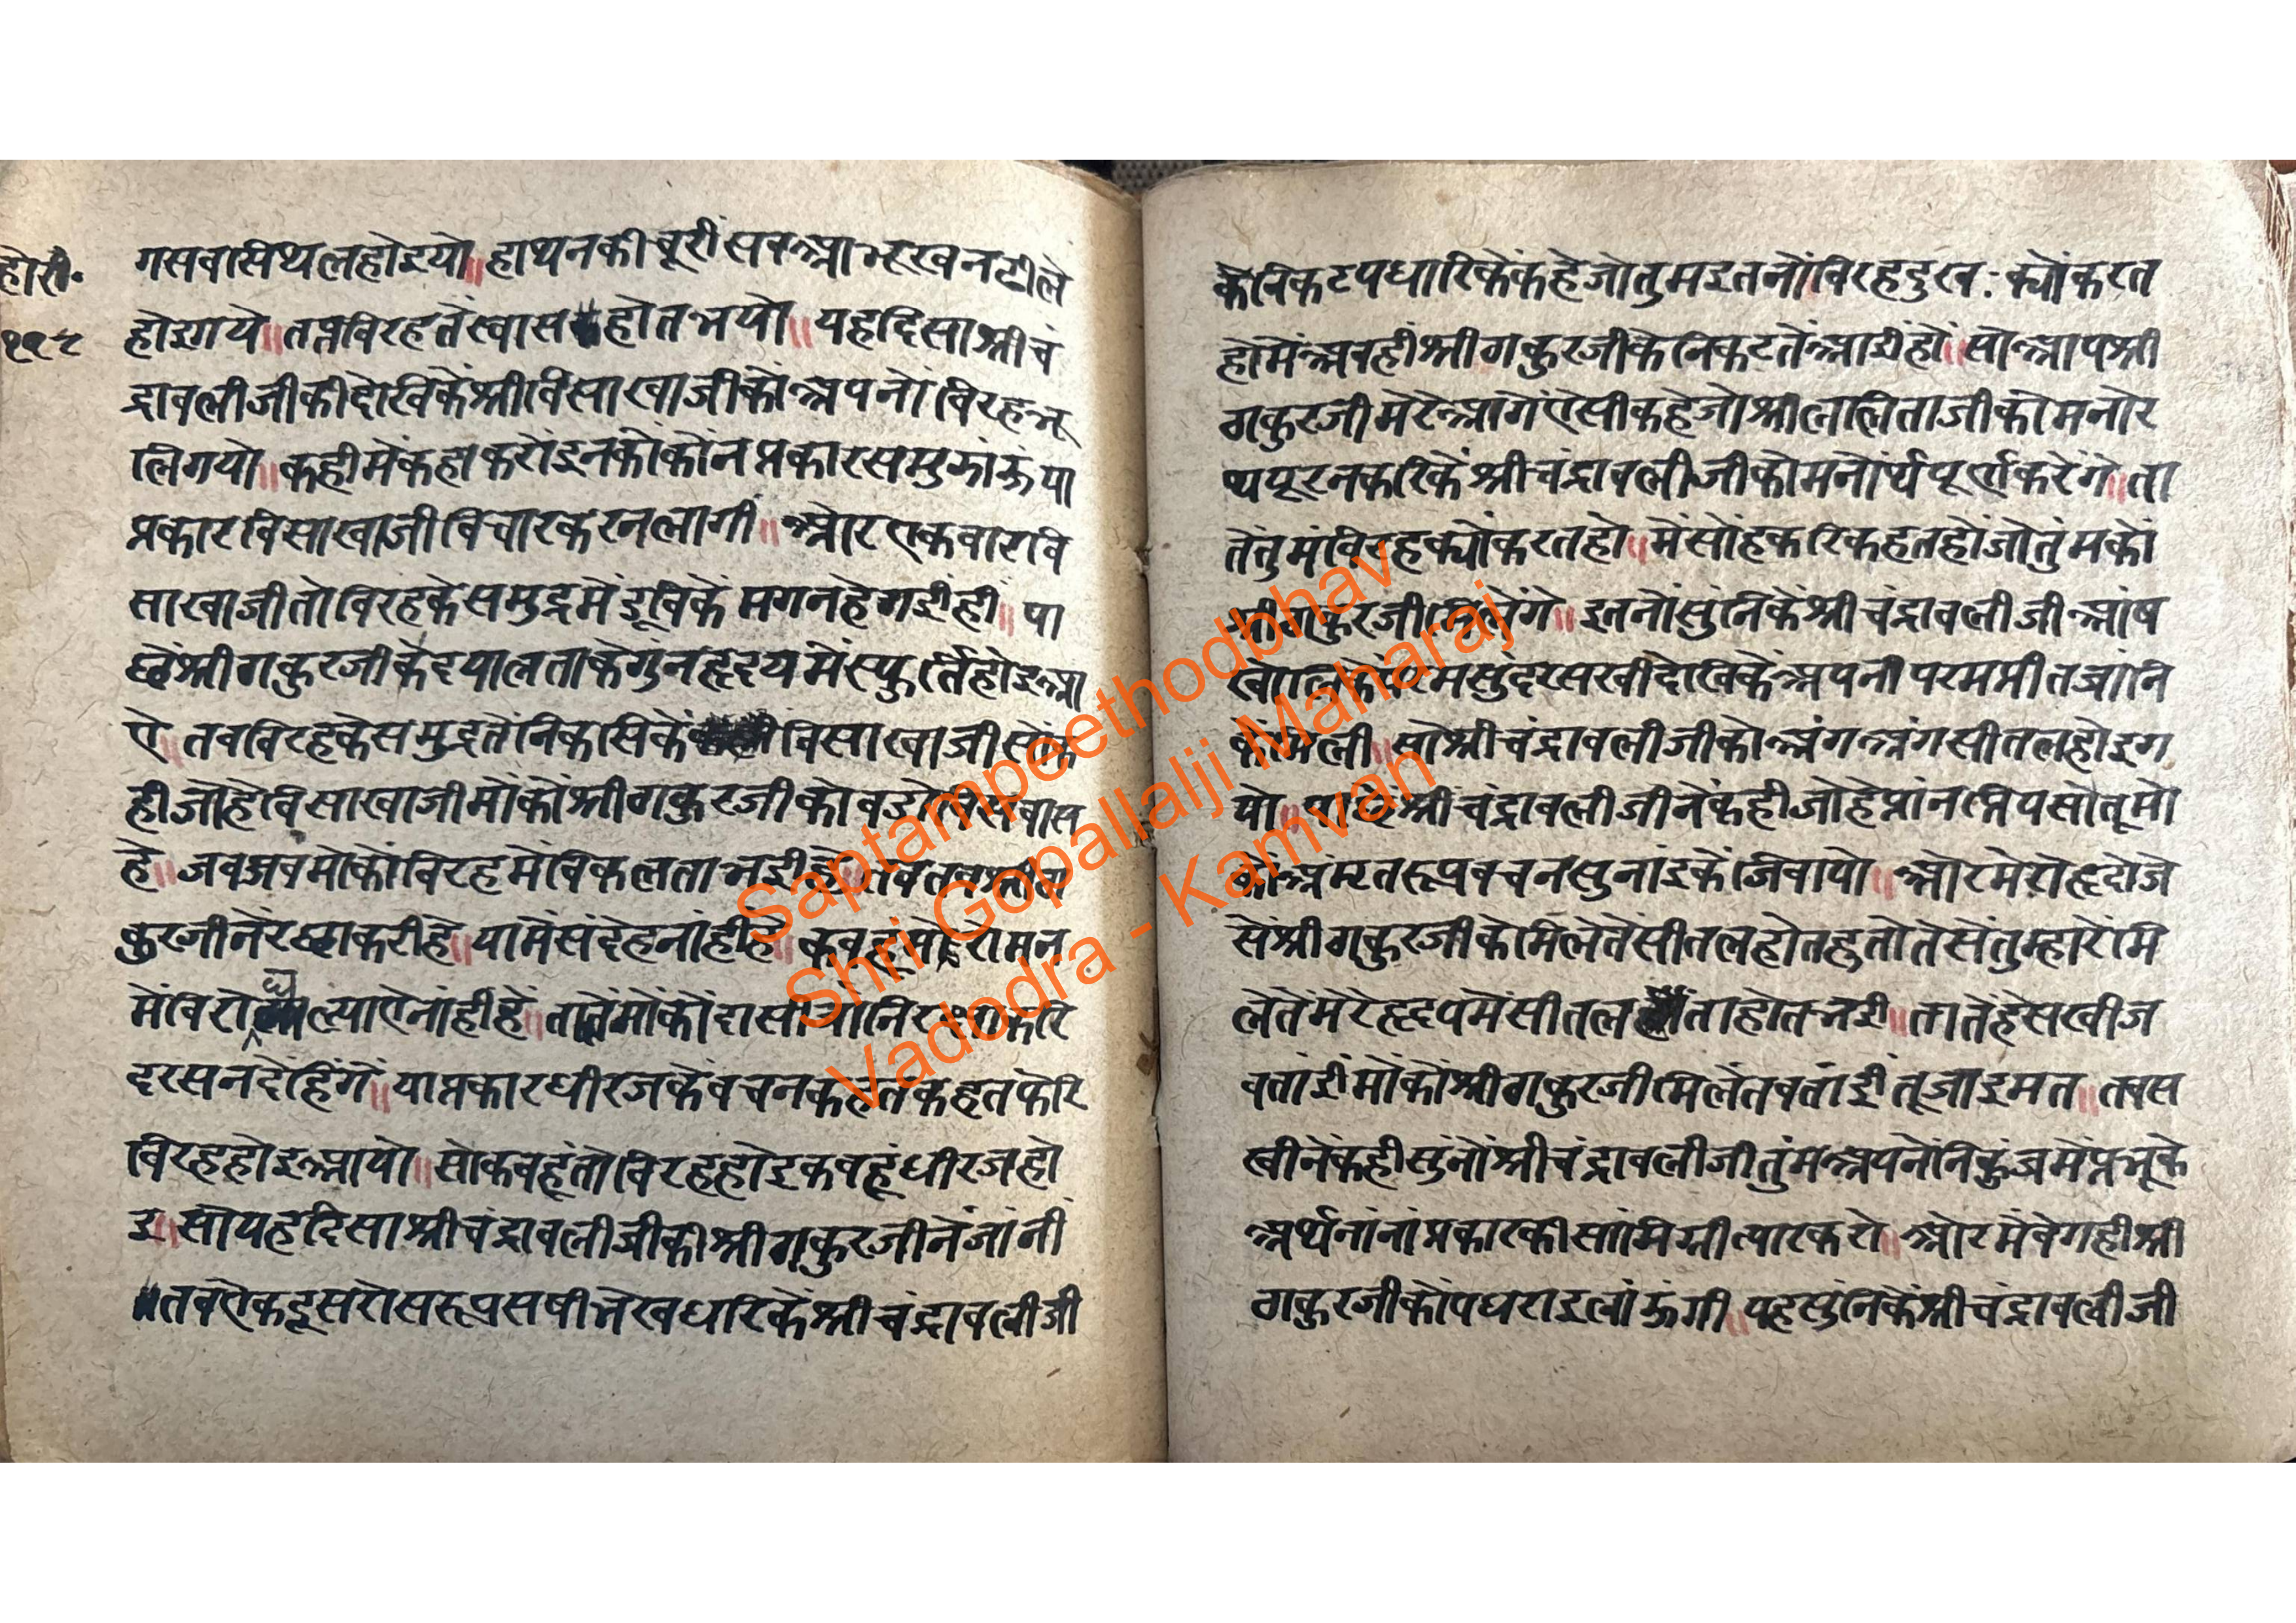 होरी॰
११८
गसवासिथलहोइयो॥हाथनकीचूरींसबआभूखनढीले
होइगये॥तप्तविरहतेंस्वासहोतभयो॥यहदिसाश्रीचं
द्रावलीजीकीदेखिकेंश्रीविसाखाजीकोंअपनोंविरहभू
लिगयो॥कहीमेंकहाकरोंइनकोंकोंनप्रकारसमुझांऊंया
प्रकारविसाखाजीविचारकरनलागीं॥ओरएकवारवि
साखाजीतोविरहकेसमुद्रमेंडूबिकेंमगनहेगईहीं॥पा
छेंश्रीठाकुरजीकेदयालताकेगुंनहृदयमेंस्फुर्तिहोइआ
ऐ॥तबविरहकेसमुद्रतेंनिकासिकेंविसाखाजीसोंक
हीजोहेविसाखाजीमोंकोंश्रीठाकुरजीकोबडोविसवास
हे॥जबजबमोकोंविरहमेंविकलताभईहे॥तबतबश्रीठा
कुरजीनेंरछाकरीहे॥यामेंसंदेहनांहींहे॥कबहूंमोरोमन
मेंविरोधल्याऐनांहीहें॥तातेंमोंकोंदासीजांनिरछाकरि
दरसनदेंहिंगें॥याप्रकारधीरजकेंवचनकहतकहतफेरि
विरहहोइआयो॥सोकबहूंतोविरहहोइकबहूंधीरजहो
इ॥सोयहदिसाश्रीचंद्रावलीजीकीश्रीठाकुरजीनेंजांनीं
॥तबऐकदूसरोसरूपसषीभेखधारिकेंश्रीचंद्रावलीजी
केनिकटपधारिकेंकहेजोतुमइतनोंविरहदुखःक्योंकरत
होमेंअबहीश्रीठाकुरजीकेनिकटतेंआईहों॥सोआपश्री
ठाकुरजीमेरेआगेंऐसीकहेजोश्रीललिताजीकोमनोर
थपूरनकरिकेंश्रीचंद्रावलीजीकोमनोर्थपूर्णकरेंगे॥ता
तेंतुमंविरहक्योंकरतहो॥मेंसोंहकरिकहतहोंजोतुंमकों
श्रीठाकुरजीमिलेंगे॥इतनोंसुंनिकेंश्रीचंद्रावलीजीआंष
खोलिकेंपरमसुंदरसखीदेखिकेंअपनीपरमप्रीतजांनि
केंमिली॥सोश्रीचंद्रावलीजीकोअंगअंगसीतलहोइग
यो॥पाछेंश्रीचंद्रावलीजीनेंकहीजोहेप्रांनप्रियसोतूमो
कोंअंमृतरूपवचनसुनांइकेंजिवायो॥ओरमेरोहृदोजे
सेंश्रीठाकुरजीकेमिलेतेंसीतलहोतहुतोतेसेंतुम्हारेंमि
लेतेंमेरेहृदयमेंसीतलताहोतभई॥तातेंहेसखीज
बतांईमोंकोंश्रीठाकुरजीमिलेंतबतांईतूंजाइमत॥तबस
खीनेंकहीसुंनोंश्रीचंद्रावलीजीतुंमअपनेंनिकुंजमेंप्रभूके
अर्थनांनांप्रकारकीसांमिग्रीत्यारकरो॥ओरमेंबेगहीश्री
ठाकुरजीकोंपधराइलांऊंगी॥यहसुंनिकेंश्रीचंद्रावलीजी
Saptampeethodbhav
Shri Gopallalji Maharaj
Vadodra - Kamvan